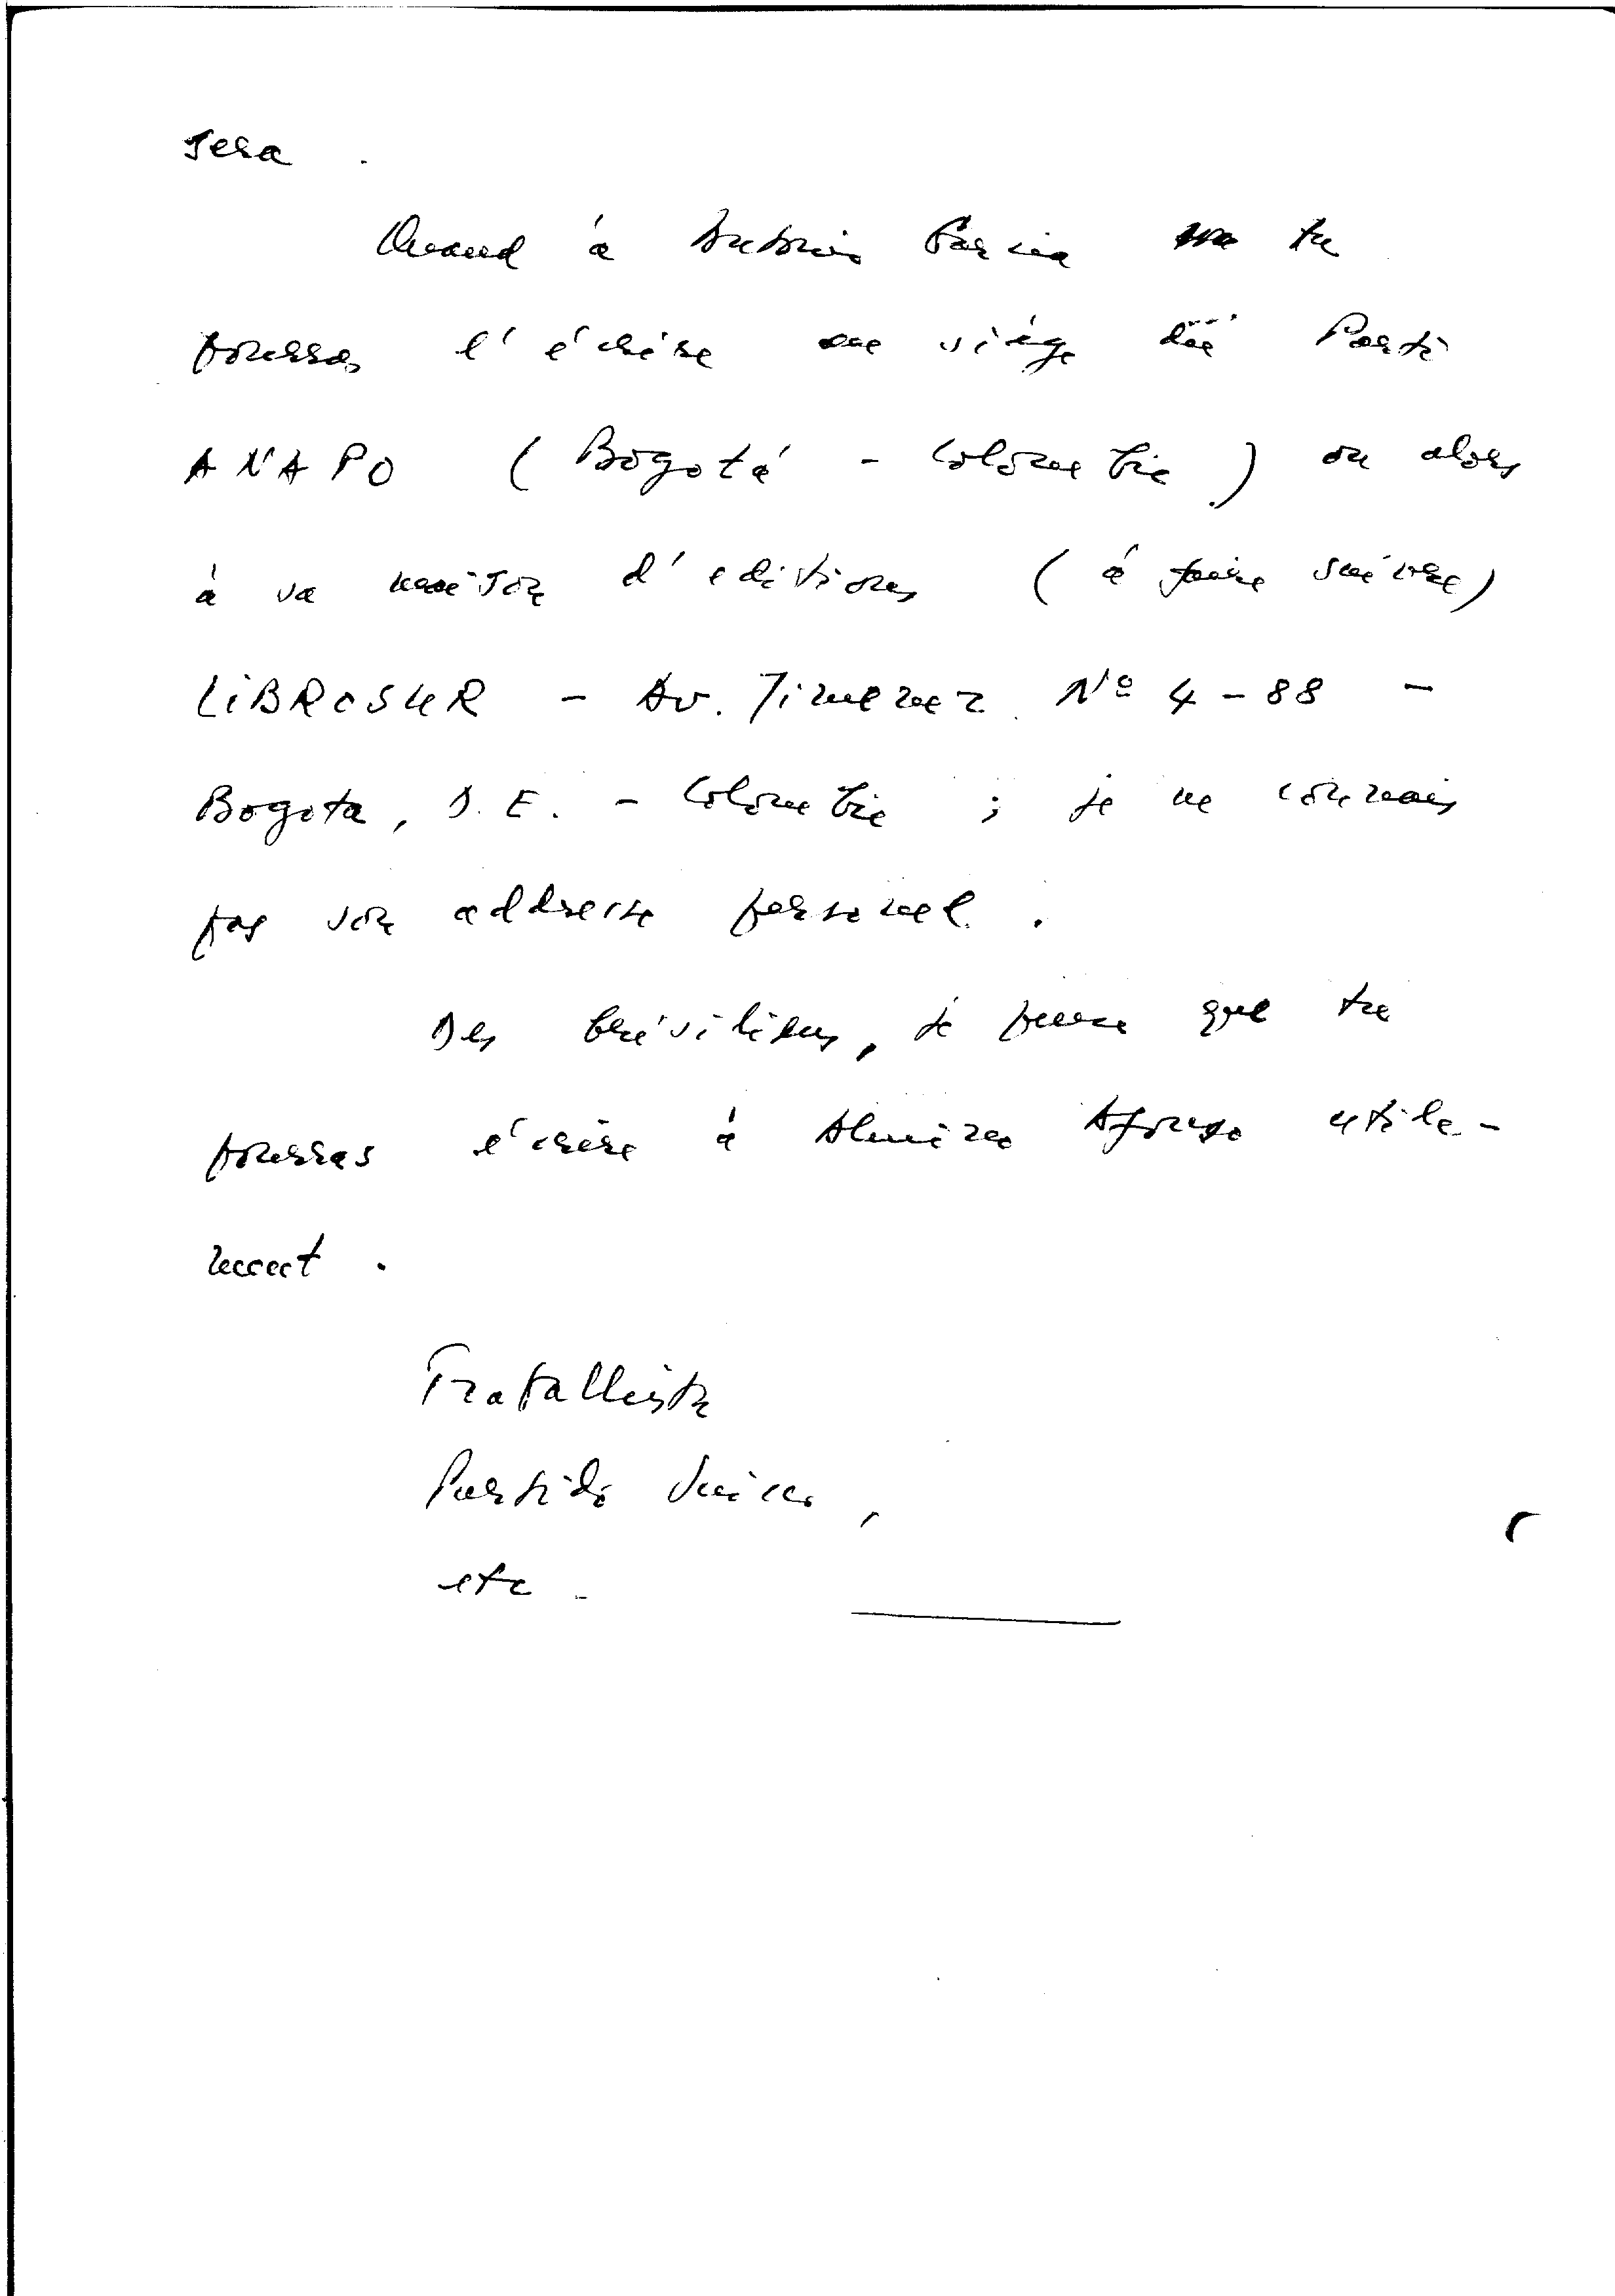 sera.
Quand à Antonio Garcia tu
pourras l'écrire au siège du Parti
ANAPO (Bogotá - Colombie) ou alors
à sa maison d'editions (à faire suivre)
LiBROSUR - Av. Jimenez Nº 4-88 -
Bogota, D.E. - Colombie ; je ne connais
pas son addresse personel.
Des brésiliens, je pense que tu
pourras écrire à Almino Afonso utile-
ment.
Trabalhista
Partido Único,
etc.